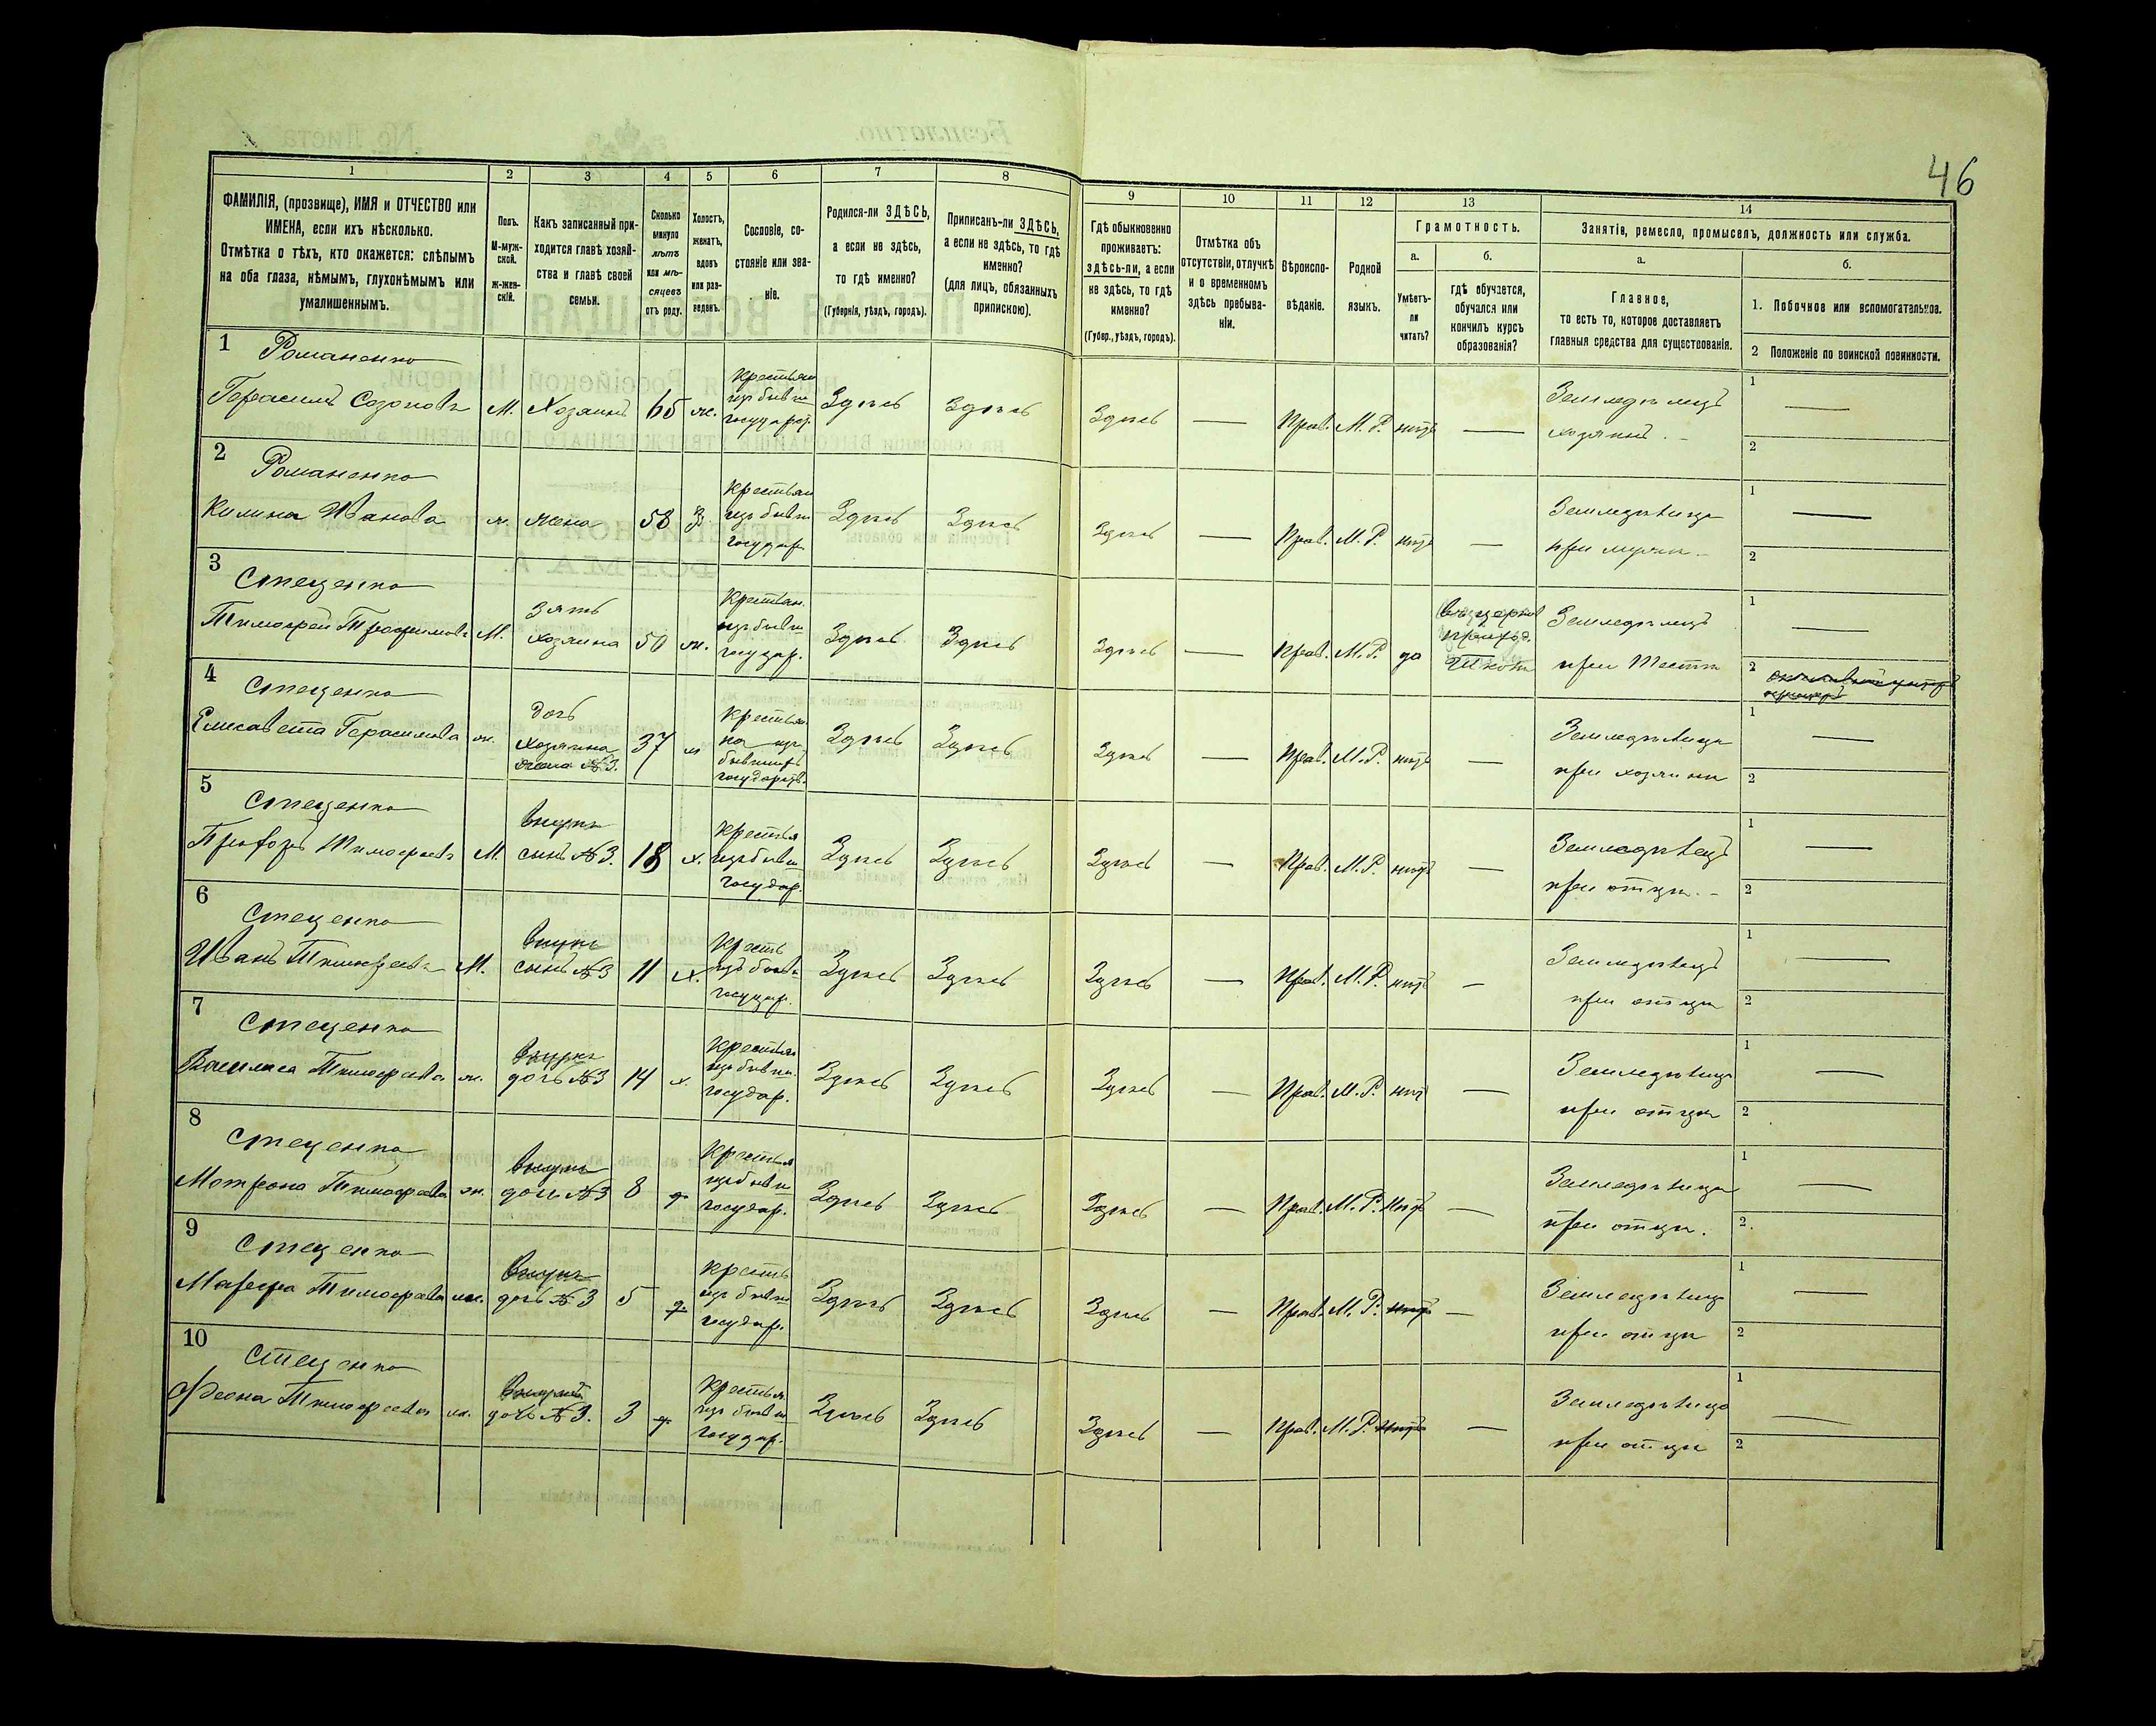 46
1
2
3
4
5
6
7
8
9
10
11
12
13
14
ФАМИЛІЯ, (прозвище), ИМЯ и ОТЧЕСТВО или
ИМЕНА, если ихъ нѣсколько.
Отмѣтка о тѣхъ, кто окажется: слѣпымъ
на оба глаза, нѣмымъ, глухонѣмымъ или
умалишеннымъ.
Полъ.
М-муж-
ской.
ж-жен-
скій.
Какъ записанный при-
ходится главѣ хозяй-
ства и главѣ своей
семьи.
Сколько
минуло
лѣтъ
или мѣ-
сяцевъ
отъ роду.
Холостъ,
женатъ,
вдовъ
или раз-
веденъ.
Сословіе, со-
стояніе или зва-
ніе.
Родился-ли ЗДѢСЬ,
а если не здѣсь,
то гдѣ именно?
(Губернія, уѣздъ, городъ).
Приписанъ-ли ЗДѢСЬ,
а если не здѣсь, то гдѣ
именно?
(для лицъ, обязанныхъ
припискою).
Гдѣ обыкновенно
проживаетъ:
здѣсь-ли, а если
не здѣсь, то гдѣ
именно?
(Губер., уѣздъ, городъ).
Отмѣтка объ
отсутствіи, отлучкѣ
и о временномъ
здѣсь пребыва-
ніи.
Вѣроиспо-
вѣданіе.
Родной
языкъ.
Грамотность.
а.
Умѣетъ-
ли
читать?
б.
гдѣ обучается,
обучался или
кончилъ курсъ
образованія?
Занятія, ремесло, промыселъ, должность или служба.
а.
Главное,
то есть то, которое доставляетъ
главныя средства для существованія.
б.
1. Побочное или вспомогательное.
2 Положеніе по воинской повинности.
1 Романенко
Герасимъ Созоновъ М. Хозяинъ 65 ж. Крестьян изъ бывш государ. Здѣсь Здѣсь Здѣсь — Прав. М.Р. нѣтъ — Земледѣлецъ хозяинъ. 1 — 2
2 Романенко
Килина Иванова ж. жена 58 З Крестьян изъ бывш государ. Здѣсь Здѣсь Здѣсь — Прав. М.Р. нѣтъ — Земледѣлица при мужѣ 1 — 2
3 Стеценко
Тимофей Трофимовъ М. Зять хозяина 50 ж. Крестьян. изъ бывш государ. Здѣсь Здѣсь Здѣсь — Прав. М.Р. да приход. Школѣ Земледѣлецъ при Тестѣ 1 — 2
4 Стеценко
Елисавета Герасимова ж. дочь хозяина жена №3. 37 Крестьян ка изъ бывшихъ государств. Здѣсь Здѣсь Здѣсь — Прав. М.Р. нѣтъ — Земледѣлица при хозяинѣ 1 — 2
5 Стеценко
Прохоръ Тимофеевъ М. внукъ сынъ №3. 18 х. Крестья изъ бывш государ. Здѣсь Здѣсь Здѣсь — Прав. М.Р. нѣтъ — Земледѣлецъ при отцѣ. 1 — 2
6 Стеценко
Иванъ Тимофеевъ М. внукъ сынъ №3 11 х. Кресть изъ бывш государ. Здѣсь Здѣсь Здѣсь — Прав. М.Р. нѣтъ — Земледѣлецъ при отцѣ 1 — 2
7 Стеценко
Василиса Тимофеева ж. дочь №3 14 х. Крестьян изъ бывш. государ. Здѣсь Здѣсь Здѣсь — Прав. М.Р. нѣтъ — Земледѣлица при отцѣ 1 — 2
8 Стеценко
Мотрона Тимофеева ж. дочь №3 8 Крестья изъ бывш государ. Здѣсь Здѣсь Здѣсь — Прав. М.Р. нѣтъ — Земледѣлица при отцѣ. 1 — 2
9 Стеценко
Марфа Тимофеева ж. дочь №3 5 Кресть изъ бывш государ. Здѣсь Здѣсь Здѣсь — Прав. М.Р. нѣтъ — Земледѣлица при отцѣ 1 — 2
10 Стеценко
Феона Тимофеева ж. дочь №3. 3 Крестья. изъ бывш государ. Здѣсь Здѣсь Здѣсь — Прав. М.Р. нѣтъ — Земледѣлица при отцѣ 1 — 2